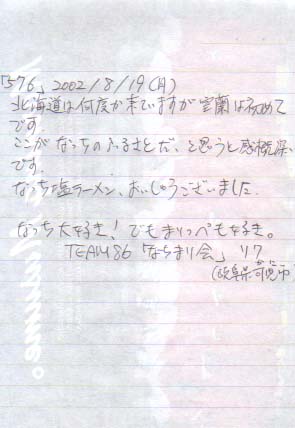 「576」 2002/8/19(月)
北海道は何度か来ていますが室蘭は初めて
です.
ここが なっちのふるさとだ、と思うと感慨深い
です.
なっち塩ラーメン、おいしゅうございました.
なっち大好き! でもまりっぺも好き。
TEAM86 「なちまり会」 リク
(岐阜県可児市
かに